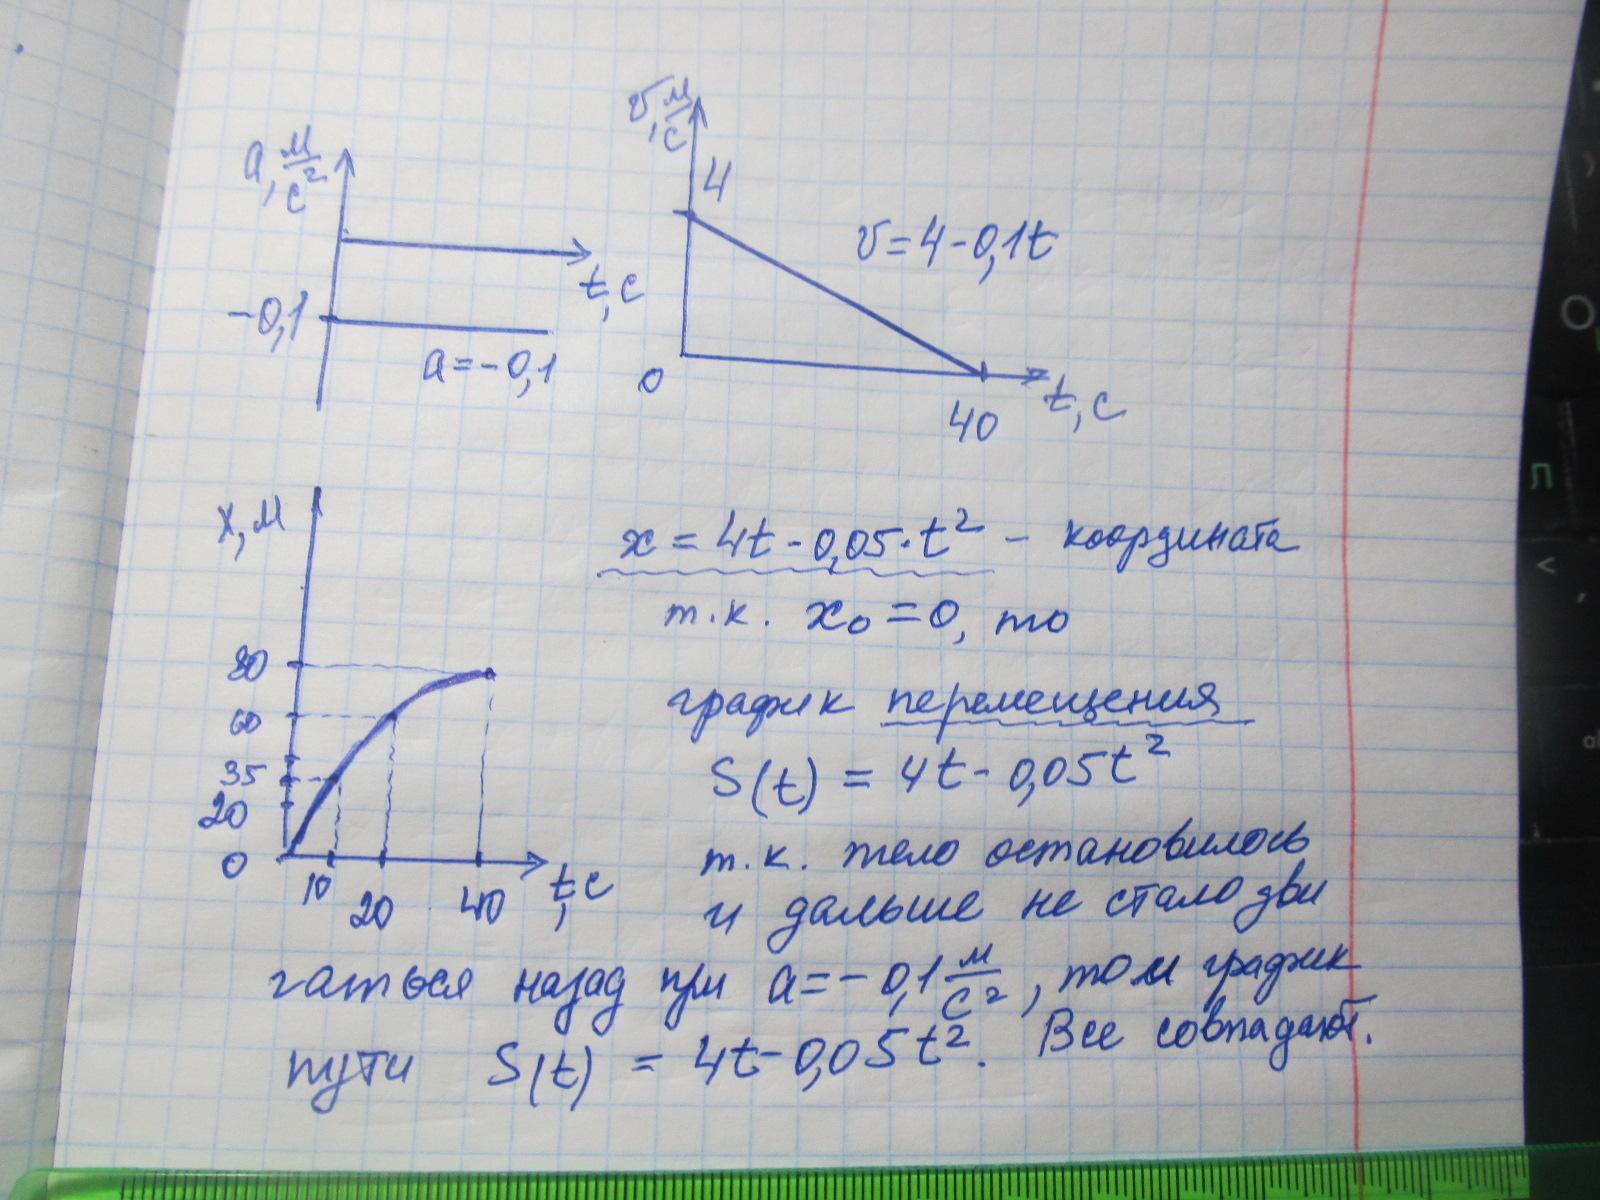 a, м/с²
t, c
-0,1
a = -0,1
v, м/с
4
v = 4 - 0,1t
0
40
t, c
x, м
80
60
35
20
0
10
20
40
t, c
x = 4t - 0,05·t² - координата
т.к. x₀ = 0, то
график перемещения
S(t) = 4t - 0,05t²
т.к. тело остановилось
и дальше не стало дви
гаться назад при a = -0,1 м/с², то и график
пути S(t) = 4t - 0,05t². Все совпадают.
Л
<